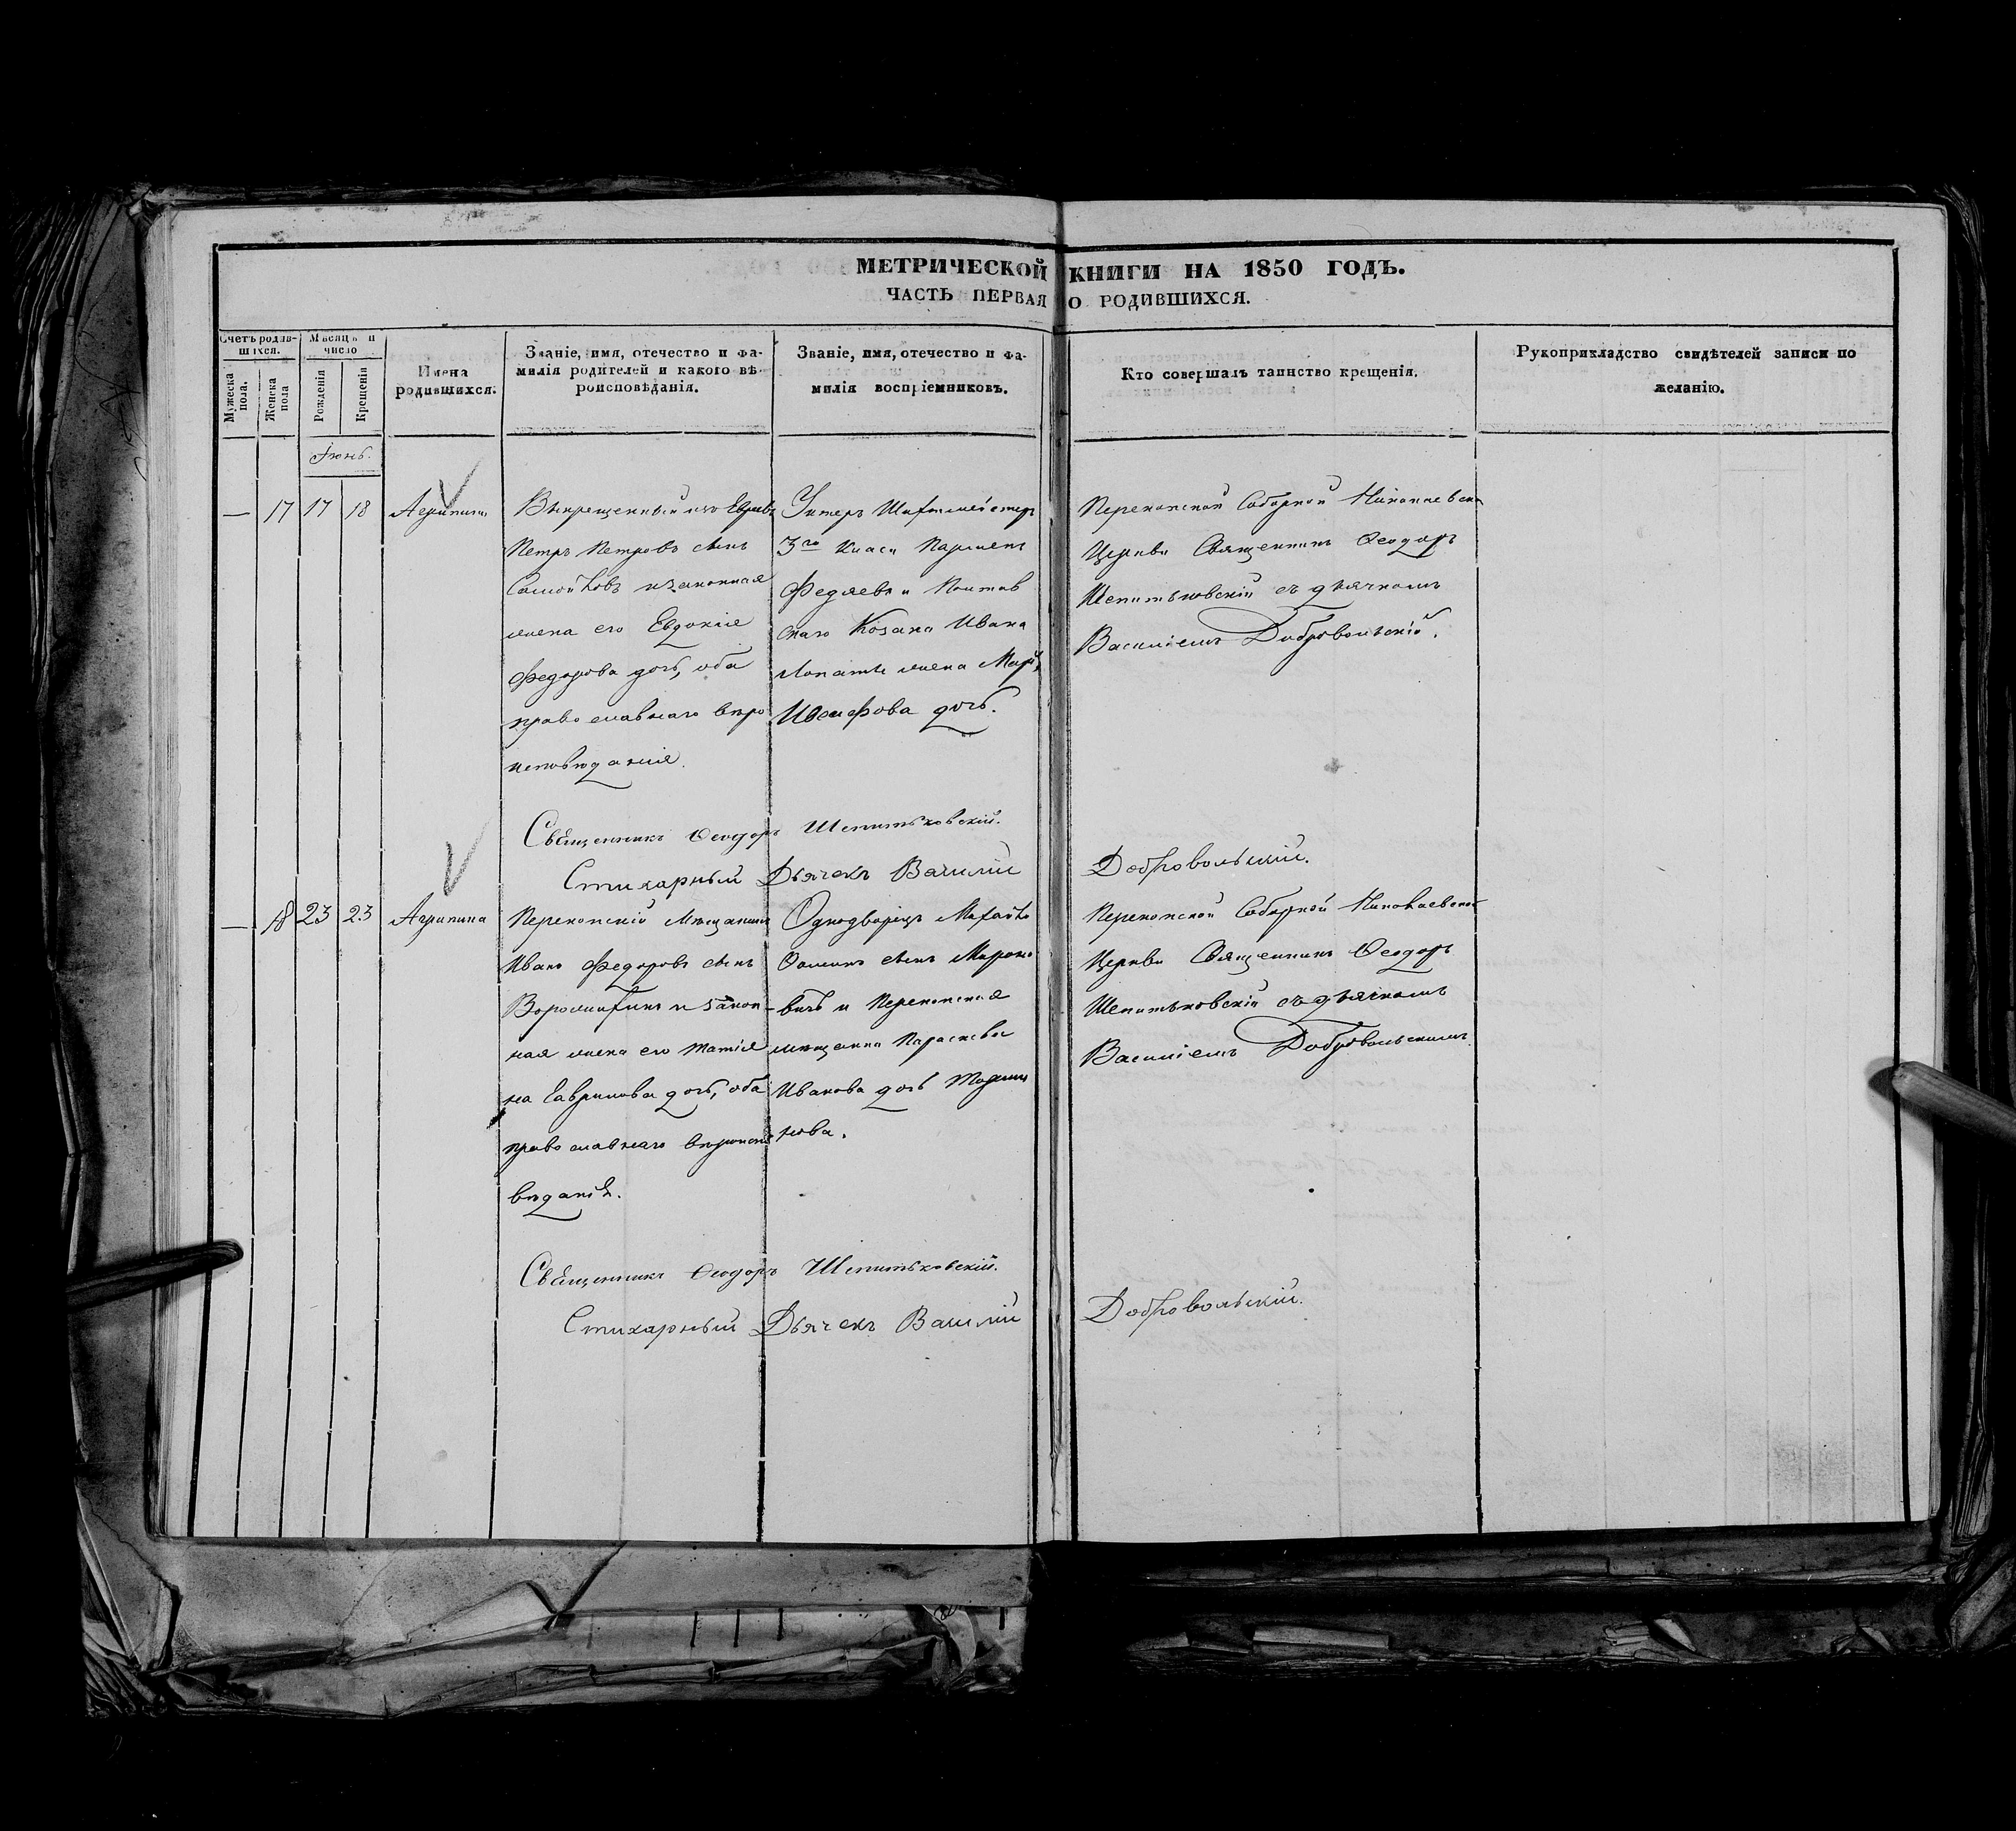 МЕТРИЧЕСКОЙ КНИГИ НА 1850 ГОДЪ.
ЧАСТЬ ПЕРВАЯ О РОДИВШИХСЯ.
Счетъ родив-
шихся.
Мужеска пола.
Женска пола
Мѣсяцъ и
число
Рожденія
Крещенія
Имена
родившихся.
Званіе, имя, отечество и фа-
милія родителей и какого вѣ-
роисповѣданія.
Званіе, имя, отечество и фа-
милія воспріемниковъ.
Кто совершалъ таинство крещенія.
Рукоприкладство свидѣтелей записи по
желанію.
Іюнь.
— 17 17 18 Агрипина
Выкрещенный изъ Евреевъ
Петръ Петровъ сынъ
Самойловъ и законная
жена его Евдокія
Федорова дочь, оба
православнаго вѣро
исповѣданія.
Унтеръ Шихтмейстеръ
3го класа Парменъ
Федяевъ и Полтав
скаго Козака Ивана
Лопаты жена Марія
Иосифова дочь.
Перекопской Соборной Николаевской
Церкви Священникъ Ѳеодоръ
Шепитьковскій съ дьячкомъ
Василіемъ Добровольскій.
Священникъ Ѳеодоръ Шепитьковскій.
Стихарный Дьячекъ Василій Добровольскій.
— 18 23 23 Агрипина
Перекопскій Мѣщанинъ
Иванъ Федоровъ сынъ
и закон-
ная жена его Татія
на Гаврилова дочь, оба
православнаго вѣроиспо
вѣданія.
Однодворецъ Михайло
Фоминъ сынъ Мироно
вичъ и Перекопская
мѣщанка Параскева
Иванова дочь
кова.
Перекопской Соборной Николаевской
Церкви Священникъ Ѳеодоръ
Шепитьковскій съ дьячкомъ
Василіемъ Добровольскимъ.
Священникъ Ѳеодоръ Шепитьковскій.
Стихарный Дьячекъ Василій Добровольскій.